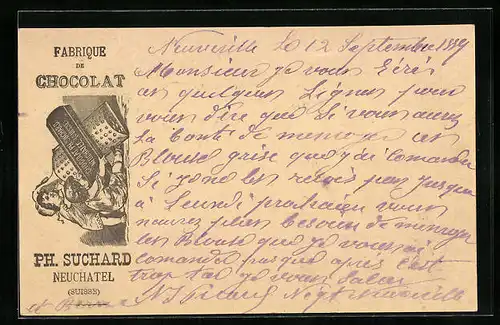 FABRIQUE
DE
CHOCOLAT
PH. SUCHARD
NEUCHATEL
(SUISSE)
Neuveville le 12 Septembre 1889
Monsieur je vous Ecris
ces quelques Lignes pour
vous dire que Si vous aurez
La bonté de menvoyer ces
Blouse grise que j'ai Comander
Si je ne les reçois pas jusque
à Lundi prochain vous
naurez plus besoin de menvoyer
les Blouse que je vous ai
Comandé pasque après C'est
trop tard je vous Salue
et Berne
Neuveville